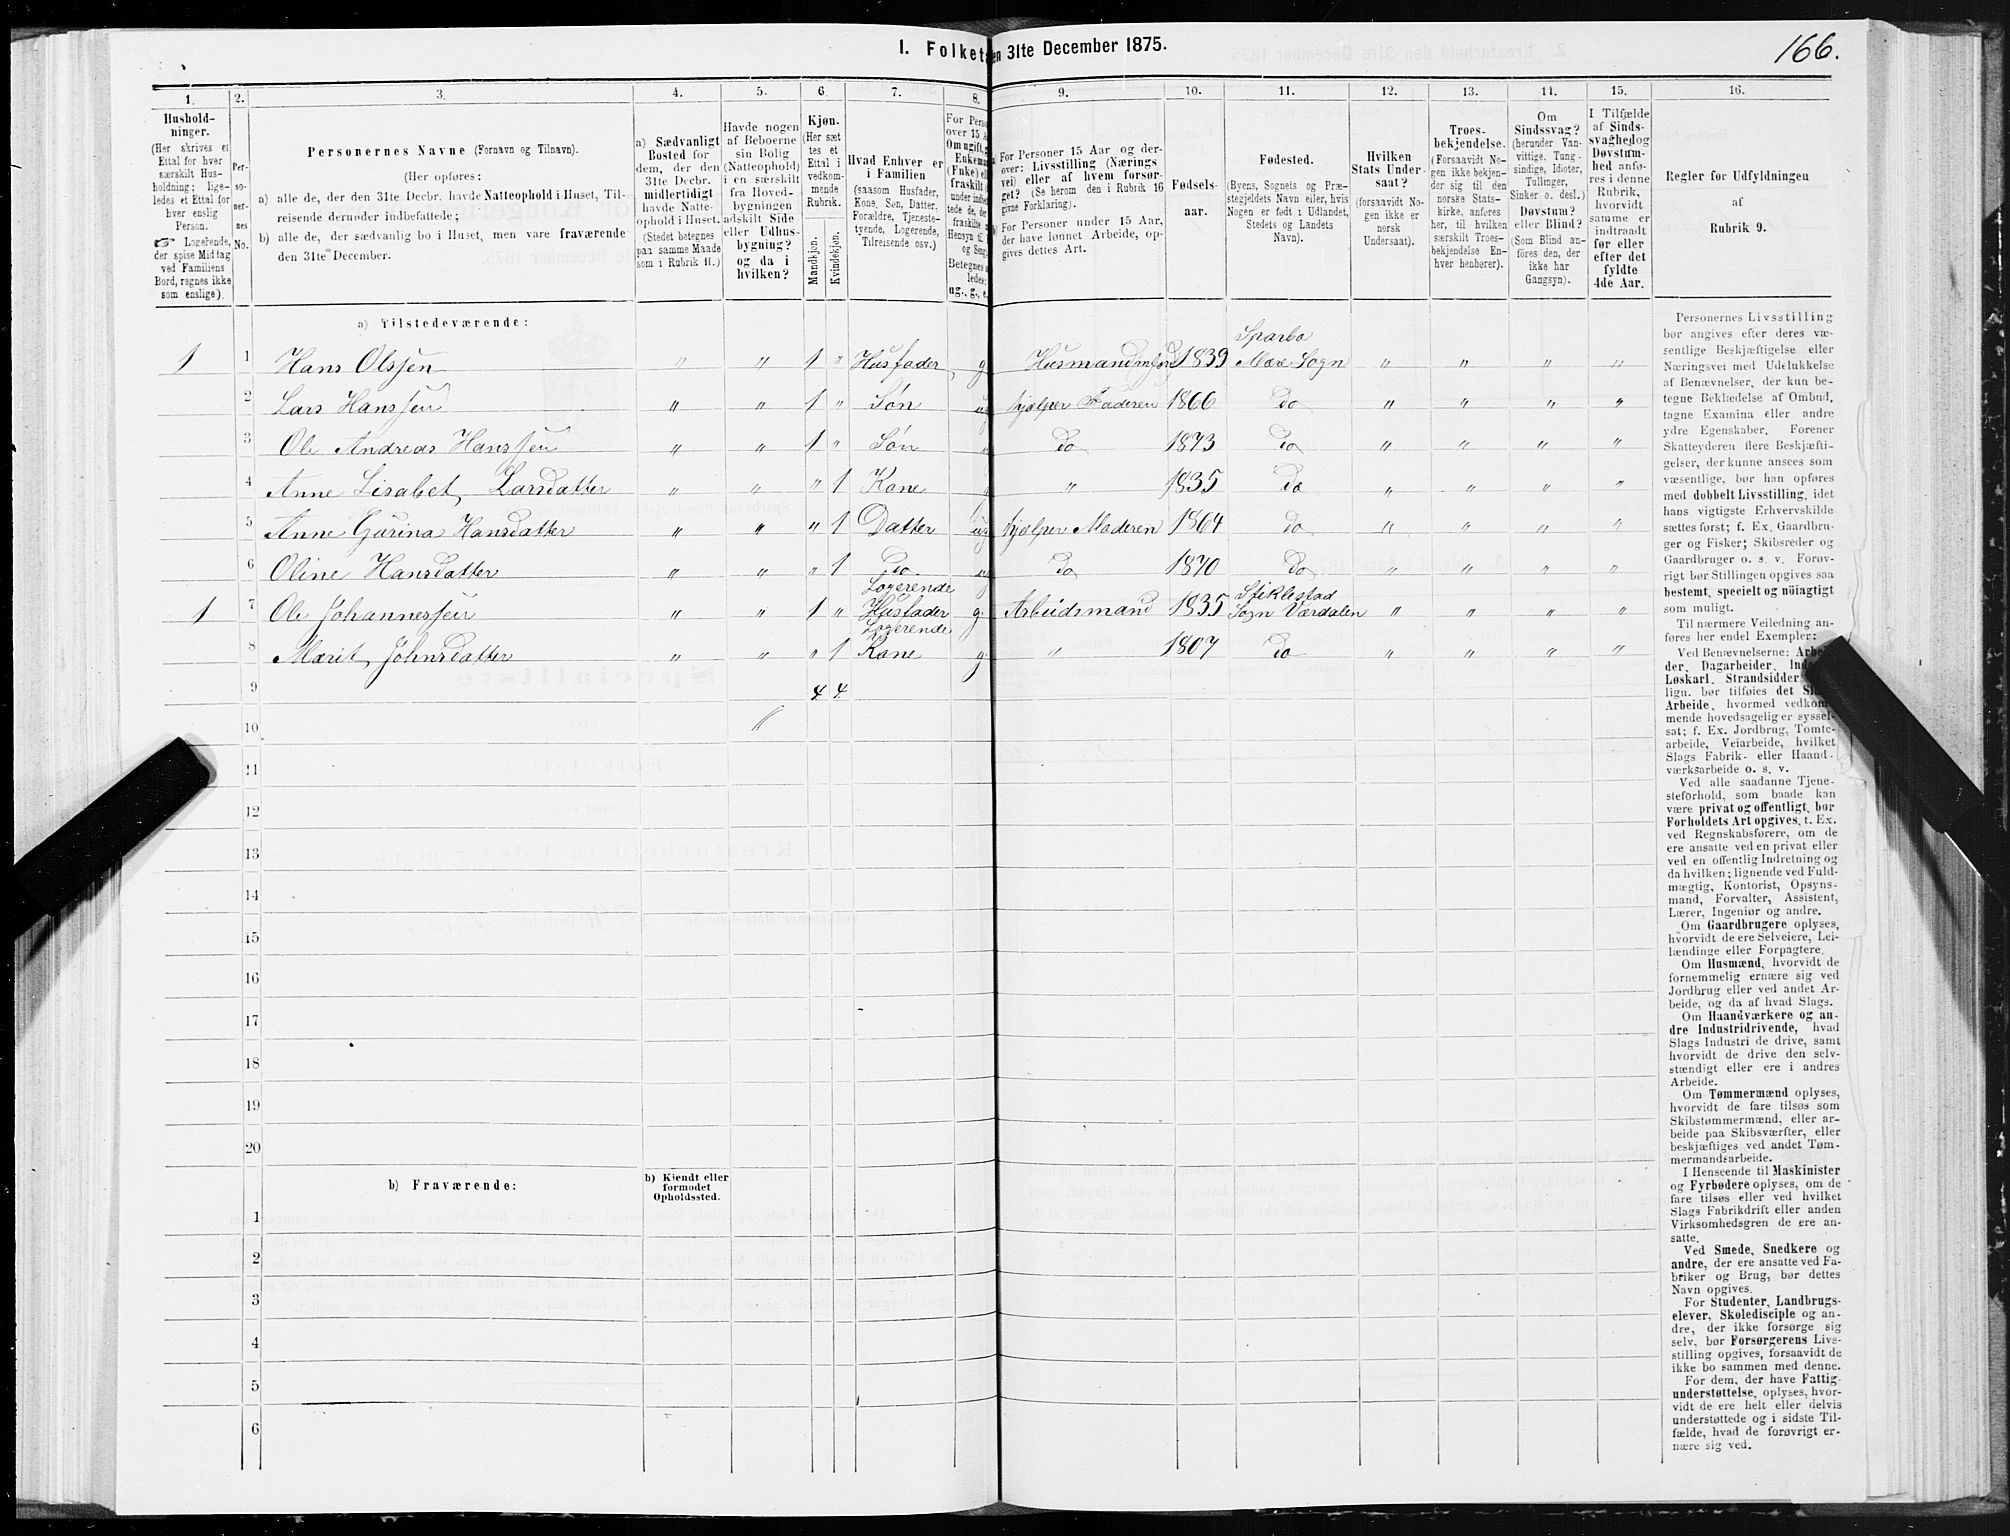 I. Folket en 31te December 1875.
166.
1.
2.
3.
4.
5.
6.
7.
8.
9.
10.
11.
12.
13.
14.
15.
16.
Hushold-
ninger.
(Her skrives et
Ettal for hver
særskilt Hus-
holdning; lige-
ledes et Ettal for
hver enslig
Person.
☞ Logerende,
der spise Middag
ved Familiens
Bord, regnes ikke
som enslige).
Per-
so-
ner-
nes
No.
Personernes Navne (Fornavn og Tilnavn).
(Her opføres:
a) alle de, der den 31te Decbr. havde Natteophold i Huset, Til-
reisende derunder indbefattede;
b) alle de, der sædvanlig bo i Huset, men vare fraværende
den 31te December.
a) Sædvanligt
Bosted for
dem, der den
31te Decbr.
midlertidigt
havde Natte-
ophold i Huset.
(Stedet betegnes
paa samme Maade
som i Rubrik 11.)
Havde nogen
af Beboerne
sin Bolig
(Natteophold)
i en særskilt
fra Hoved-
bygningen
adskilt Side
eller Udhus-
bygning?
og da i
hvilken?
Kjøn.
(Her sæt
tes et
Ettal i
vedkom-
mende
Rubrik.
Mandkjøn.
Kvindekjøn.
Hvad Enhver er
i Familien
(saasom Husfader,
Kone, Søn, Datter,
Forældre, Tjeneste-
tyende, Logerende,
Tilreisende osv.)
For Perso
over 15 A
Om ugift, g
Enkema
(Enke) el
fraskilt
ug., g., e.
For Personer 15 Aar og der-
over: Livsstilling (Nærings
vei) eller af hvem forsør-
get? (Se herom den i Rubrik 16
givne Forklaring).
For Personer under 15 Aar,
der have lønnet Arbeide, op-
gives dettes Art.
Fødsels-
aar.
Fødested.
(Byens, Sognets og Præ-
stegjeldets Navn eller, hvis
Nogen er født i Udlandet,
Stedets og Landets
Navn).
Hvilken
Stats Under-
saat?
(forsaavidt No-
gen ikke er
norsk
Undersaat).
Troes-
bekjendelse.
(Forsaavidt No-
gen ikke bekjen-
der sig til den
norske Stats-
kirke, anføres
her, til hvilken
særskilt Troes-
bekjendelse En-
hver henhører).
Om
Sindssvag?
(herunder Van-
vittige, Tung-
sindige, Idioter,
Tullinger,
Sinker o. desl.)
Døvstum?
eller Blind?
(Som Blind an-
føres den, der
ikke har
Gangsyn).
I Tilfælde
af Sinds-
svaghed og
Døvstum-
hed anfø-
res i denne
Rubrik,
hvorvidt
samme er
indtraadt
før eller
efter det
fyldte
4de Aar.
Regler for Udfyldningen
af
Rubrik 9.
a) Tilstedeværende:
1 1 Hans Olssen " " 1 " Husfader g 1839 Sparbo Mære Sogn " " " "
2 Lars Hanssen " " 1 " Søn ug hjælper Faderen 1866 Do " " " "
3 Ole Andreas Hanssen " " 1 " Søn " Do 1873 Do " " " "
4 Anne Lisabet Larsdatter " " " 1 Kone g " 1835 Do " " " "
5 Anne Gurina Hansdatter " " " 1 Datter ug hjælper Moderen 1864 Do " " " "
6 Oline Hansdatter " " " 1 Do ug Do 1870 Do " " " "
1 7 Ole Johannessen " " 1 " Logerende Husfader g. Arbeidsmand 1835 Stiklestad Sogn Værdalen " " " "
8 Marit Johnsdatter " " " 1 Logerende Kone g. " 1807 Do " " " "
9 4 4
10
11
12
13
14
15
16
17
18
19
20
b) Fraværende:
b) Kjendt eller
formodet
Opholdssted.
1
2
3
4
5
6
Personernes Livsstilling
bør angives efter deres væ-
sentlige Beskjæftigelse eller
Næringsvei med Udelukkelse
af Benævnelser, der kun be-
tegne Beklædelse af Ombud,
tagne Examina eller andre
ydre Egenskaber. Forener
Skatteyderen flere Beskjæfti-
gelser, der kunne ansees som
væsentlige, bør han opføres
med dobbelt Livsstilling, idet
hans vigtigste Erhvervskilde
sættes først; f. Ex. Gaardbru-
ger og Fisker; Skibsreder og
Gaardbruger o. s. v. Forøv-
rigt bør Stillingen opgives saa
bestemt, specielt og nøiagtigt
som muligt.
Til nærmere Veiledning an-
føres her endel Exempler:
Ved Benævnelserne: Arbei-
der, Dagarbeider, Inde
Løskarl, Strandsidder
lign. bør tilføies det Sla
Arbeide, hvormed vedkom-
mende hovedsagelig er syssel-
sat; f. Ex. Jordbrug, Tomte-
arbeide, Veiarbeide, hvilket
Slags Fabrik- eller Haand-
værksarbeide o. s. v.
Ved alle saadanne Tjene-
steforhold, som baade kan
være privat og offentligt, bør
Forholdets Art opgives, f. Ex.
ved Regnskabsførere, om de
ere ansatte ved en privat eller
ved en offentlig Indretning og
da hvilken; lignende ved Fuld-
mægtig, Kontorist, Opsyns-
mand, Forvalter, Assistent,
Lærer, Ingeniør og andre.
Om Gaardbrugere oplyses,
hvorvidt de ere Selveiere, Lei-
lændinge eller Forpagtere.
Om Husmænd, hvorvidt de
fornemmelig ernære sig ved
Jordbrug eller ved andet Ar-
beide, og da af hvad Slags.
Om Haandværkere og an-
dre Industridrivende, hvad
Slags Industri de drive, samt
hvorvidt de drive den selv-
stændigt eller ere i andres
Arbeide.
Om Tømmermænd oplyses,
hvorvidt de fare tilsøs som
Skibstømmermænd, eller ar-
beide paa Skibsværfter, eller
beskjæftiges ved andet Tøm-
mermandsarbeide.
I Henseende til Maskinister
og Fyrbødere oplyses, om de
fare tilsøs eller ved hvilket
Slags Fabrikdrift eller anden
Virksomhedsgren de ere an-
satte.
Ved Smede, Snedkere og
andre, der ere ansatte ved Fa-
briker og Brug, bør dettes
Navn opgives.
For Studenter, Landbrugs-
elever, Skoledisciple og an-
dre, der ikke forsørge sig
selv, bør Forsørgerens Livs-
stilling opgives, forsaavidt de
ikke bo sammen med denne.
For dem, der have Fattig-
understøttelse, oplyses, hvor-
vidt de ere helt eller delvis
understøttede og i sidste Til-
fælde, hvad de forøvrigt er-
nære sig ved.